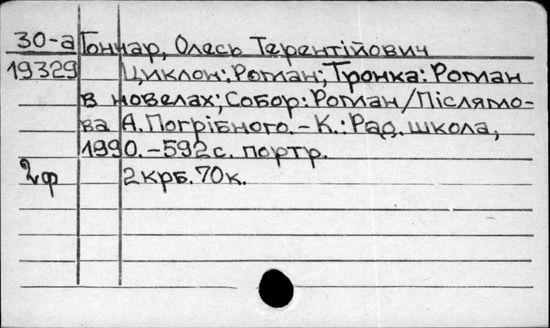 30-а Гончар, Олесь Терентійович
19329 Циклон: Роман; Тронка: Роман
в новелах; Собор: Роман/Післямо-
ва А. Погрібного. - К.: Рад. школа,
1990. - 592 с. портр.
2ф 2 крб. 70 к.